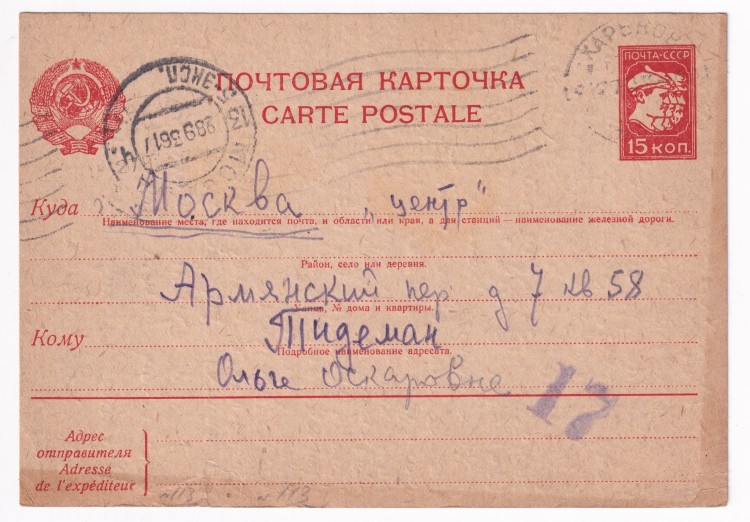 ПОЧТОВАЯ КАРТОЧКА
CARTE POSTALE
ПОЧТА-СССР
15 КОП.
28 9 36 17
Куда Москва „центр"
Наименование места, где находится почта, и области или края, а для станций — наименование железной дороги.
Район, село или деревня.
Армянский пер д 7 кв 58
Улица, № дома и квартиры.
Кому Тидеман
Подробное наименование адресата.
Ольге Оскаровне
17
Адрес
отправителя
Adresse
de l'expéditeur